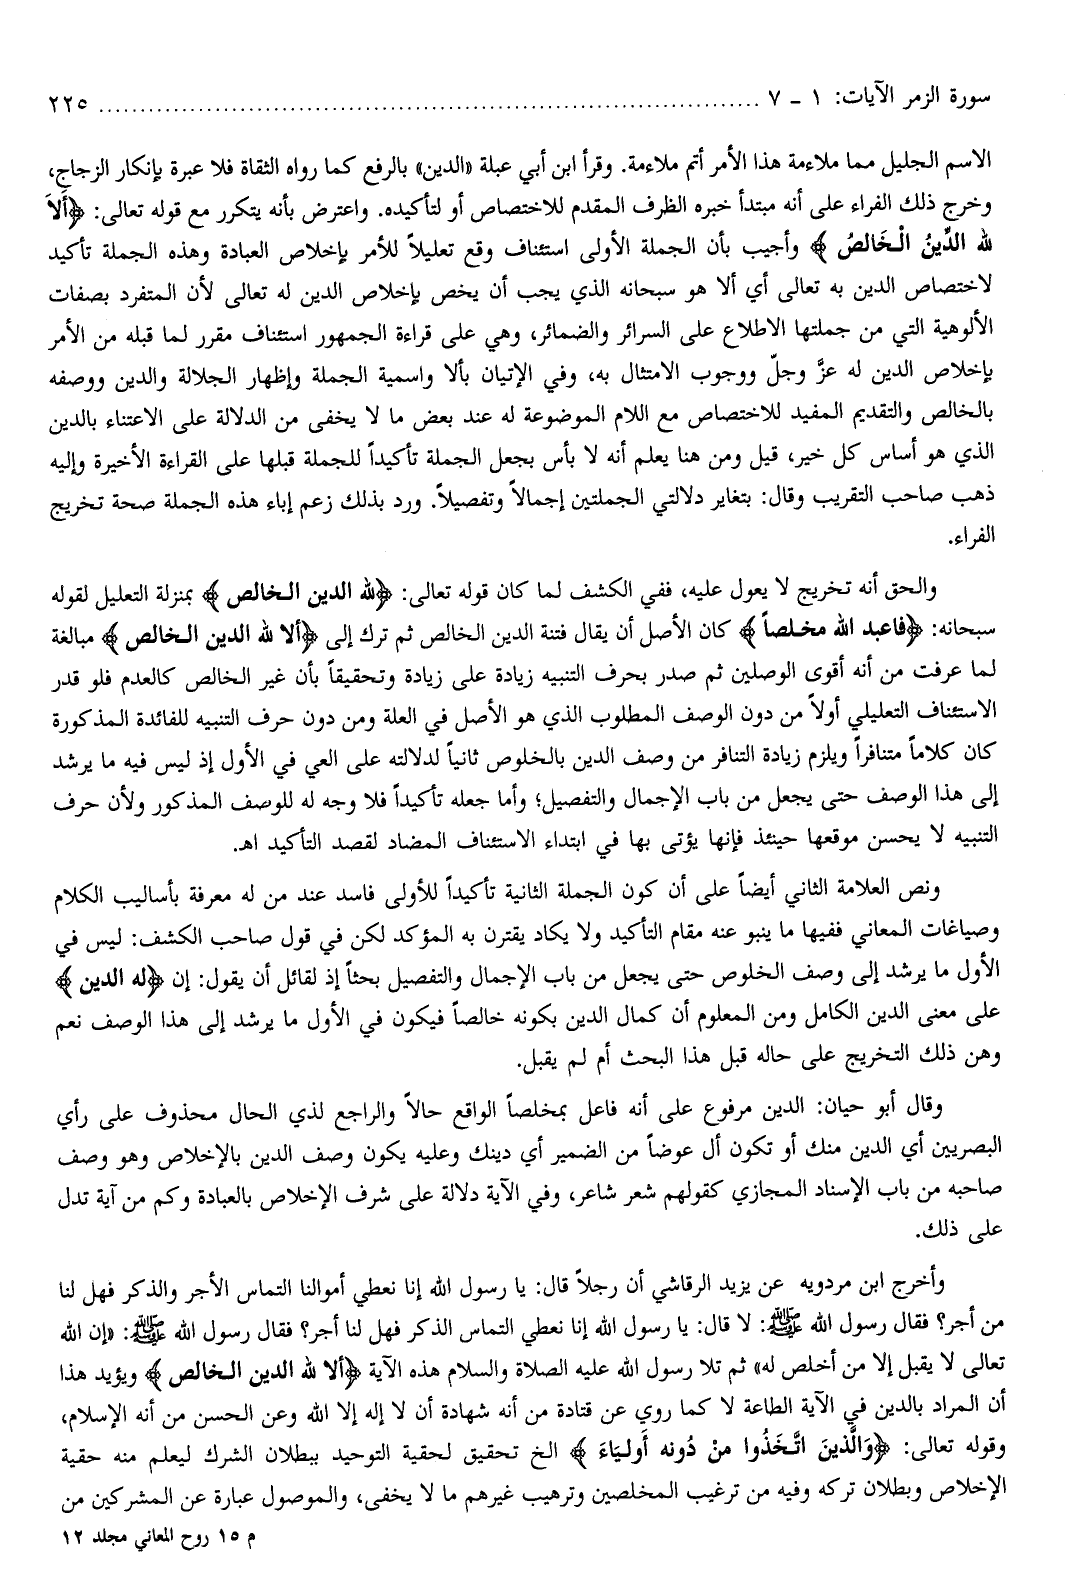 سورة الزمر الآيات: ١ ـ ٧ ................................................................................ ٢٢٥
الاسم الجليل مما ملاءمة هذا الأمر أتم ملاءمة. وقرأ ابن أبي عبلة «الدين» بالرفع كما رواه الثقاة فلا عبرة بإنكار الزجاج،
وخرج ذلك الفراء على أنه مبتدأ خبره الظرف المقدم للاختصاص أو لتأكيده. واعترض بأنه يتكرر مع قوله تعالى: ﴿أَلاَ
لله الدِّينُ الْخَالصُ﴾ وأجيب بأن الجملة الأولى استئناف وقع تعليلاً للأمر بإخلاص العبادة وهذه الجملة تأكيد
لاختصاص الدين به تعالى أي ألا هو سبحانه الذي يجب أن يخص بإخلاص الدين له تعالى لأن المتفرد بصفات
الألوهية التي من جملتها الاطلاع على السرائر والضمائر، وهي على قراءة الجمهور استئناف مقرر لما قبله من الأمر
بإخلاص الدين له عزَّ وجلّ ووجوب الامتثال به، وفي الإتيان بألا واسمية الجملة وإظهار الجلالة والدين ووصفه
بالخالص والتقديم المفيد للاختصاص مع اللام الموضوعة له عند بعض ما لا يخفى من الدلالة على الاعتناء بالدين
الذي هو أساس كل خير، قيل ومن هنا يعلم أنه لا بأس بجعل الجملة تأكيداً للجملة قبلها على القراءة الأخيرة وإليه
ذهب صاحب التقريب وقال: بتغاير دلالتي الجملتين إجمالاً وتفصيلاً. ورد بذلك زعم إباء هذه الجملة صحة تخريج
الفراء.
والحق أنه تخريج لا يعول عليه، ففي الكشف لما كان قوله تعالى: ﴿لله الدين الخالص﴾ بمنزلة التعليل لقوله
سبحانه: ﴿فاعبد الله مخلصاً﴾ كان الأصل أن يقال فتنة الدين الخالص ثم ترك إلى ﴿ألا لله الدين الخالص﴾ مبالغة
لما عرفت من أنه أقوى الوصلين ثم صدر بحرف التنبيه زيادة على زيادة وتحقيقاً بأن غير الخالص كالعدم فلو قدر
الاستئناف التعليلي أولاً من دون الوصف المطلوب الذي هو الأصل في العلة ومن دون حرف التنبيه للفائدة المذكورة
كان كلاماً متنافراً ويلزم زيادة التنافر من وصف الدين بالخلوص ثانياً لدلالته على العي في الأول إذ ليس فيه ما يرشد
إلى هذا الوصف حتى يجعل من باب الإجمال والتفصيل؛ وأما جعله تأكيداً فلا وجه له للوصف المذكور ولأن حرف
التنبيه لا يحسن موقعها حينئذ فإنها يؤتى بها في ابتداء الاستئناف المضاد لقصد التأكيد اهـ.
ونص العلامة الثاني أيضاً على أن كون الجملة الثانية تأكيداً للأولى فاسد عند من له معرفة بأساليب الكلام
وصياغات المعاني ففيها ما ينبو عنه مقام التأكيد ولا يكاد يقترن به المؤكد لكن في قول صاحب الكشف: ليس في
الأول ما يرشد إلى وصف الخلوص حتى يجعل من باب الإجمال والتفصيل بحثاً إذ لقائل أن يقول: إن ﴿له الدين﴾
على معنى الدين الكامل ومن المعلوم أن كمال الدين بكونه خالصاً فيكون في الأول ما يرشد إلى هذا الوصف نعم
وهن ذلك التخريج على حاله قبل هذا البحث أم لم يقبل.
وقال أبو حيان: الدين مرفوع على أنه فاعل بمخلصاً الواقع حالاً والراجع لذي الحال محذوف على رأي
البصريين أي الدين منك أو تكون أل عوضاً من الضمير أي دينك وعليه يكون وصف الدين بالإخلاص وهو وصف
صاحبه من باب الإسناد المجازي كقولهم شعر شاعر، وفي الآية دلالة على شرف الإخلاص بالعبادة وكم من آية تدل
على ذلك.
وأخرج ابن مردويه عن يزيد الرقاشي أن رجلاً قال: يا رسول الله إنا نعطي أموالنا التماس الأجر والذكر فهل لنا
من أجر؟ فقال رسول الله ﷺ: لا قال: يا رسول الله إنا نعطي التماس الذكر فهل لنا أجر؟ فقال رسول الله ﷺ: «إن الله
تعالى لا يقبل إلا من أخلص له» ثم تلا رسول الله عليه الصلاة والسلام هذه الآية ﴿ألا لله الدين الخالص﴾ ويؤيد هذا
أن المراد بالدين في الآية الطاعة لا كما روي عن قتادة من أنه شهادة أن لا إله إلا الله وعن الحسن من أنه الإسلام،
وقوله تعالى: ﴿وَالَّذينَ اتَّخَذُوا منْ دُونه أَوليَاءَ﴾ الخ تحقيق لحقية التوحيد ببطلان الشرك ليعلم منه حقية
الإخلاص وبطلان تركه وفيه من ترغيب المخلصين وترهيب غيرهم ما لا يخفى، والموصول عبارة عن المشركين من
م ١٥ روح المعاني مجلد ١٢